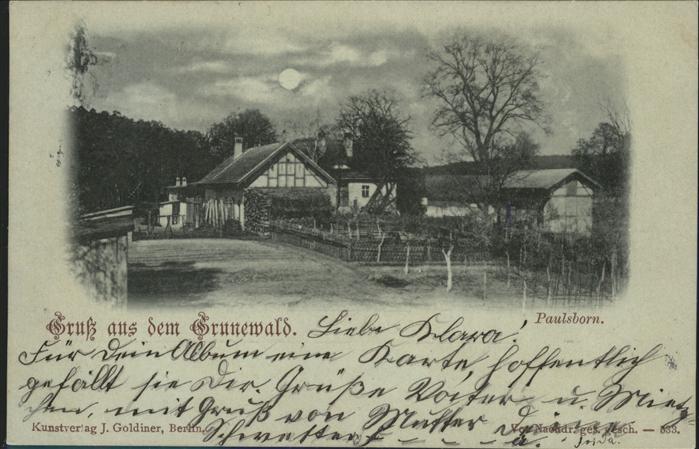 Gruß aus dem Grunewald.
Paulsborn.
Liebe Klara!
Für Dein Album eine Karte, hoffentlich
gefällt sie Dir. Grüße Vater u.
mit Gruß von Mutter
Kunstverlag J. Goldiner, Berlin.
Vor Nachdr. ges. gesch. — 533.